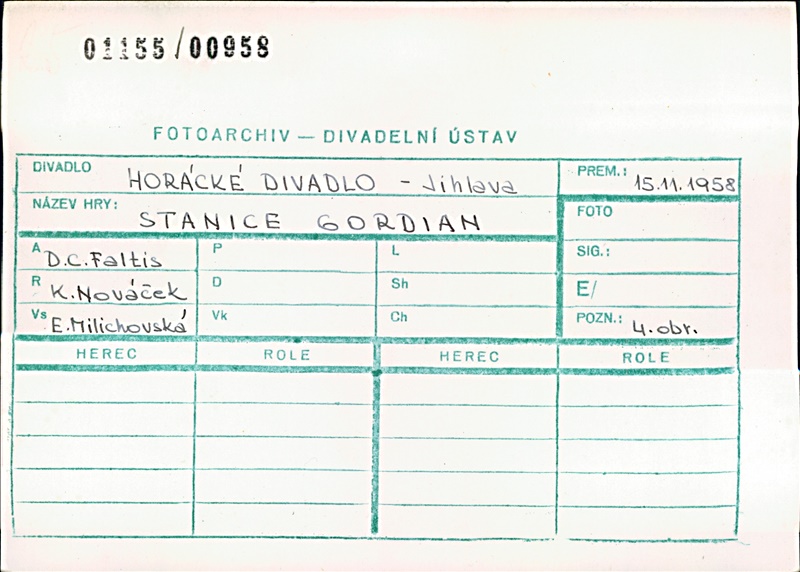 01155/00958
FOTOARCHIV — DIVADELNÍ ÚSTAV
DIVADLO HORÁCKÉ DIVADLO - Jihlava PREM.: 15.11.1958
NÁZEV HRY: STANICE GORDIAN FOTO
A D.C.Faltis P L SIG.:
R K.Nováček D Sh E/
Vs E.Milichovská Vk Ch POZN.: 4.obr.
HEREC ROLE HEREC ROLE